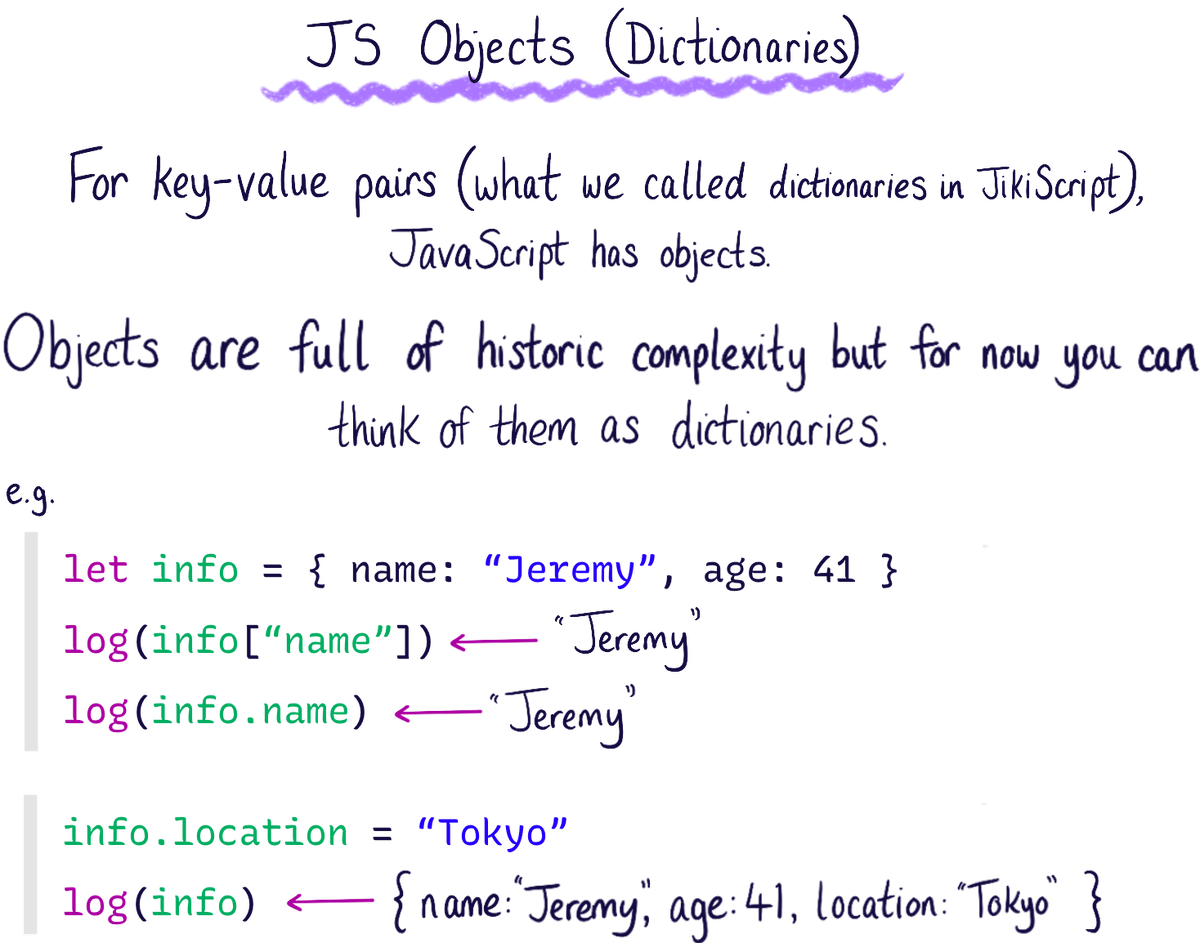 JS Objects (Dictionaries)
For key-value pairs (what we called dictionaries in JikiScript),
JavaScript has objects.
Objects are full of historic complexity but for now you can
think of them as dictionaries.
e.g.
let info = { name: “Jeremy”, age: 41 }
log(info[“name”]) ← “Jeremy”
log(info.name) ← “Jeremy”
info.location = “Tokyo”
log(info) ← { name: “Jeremy”, age: 41, location: “Tokyo” }